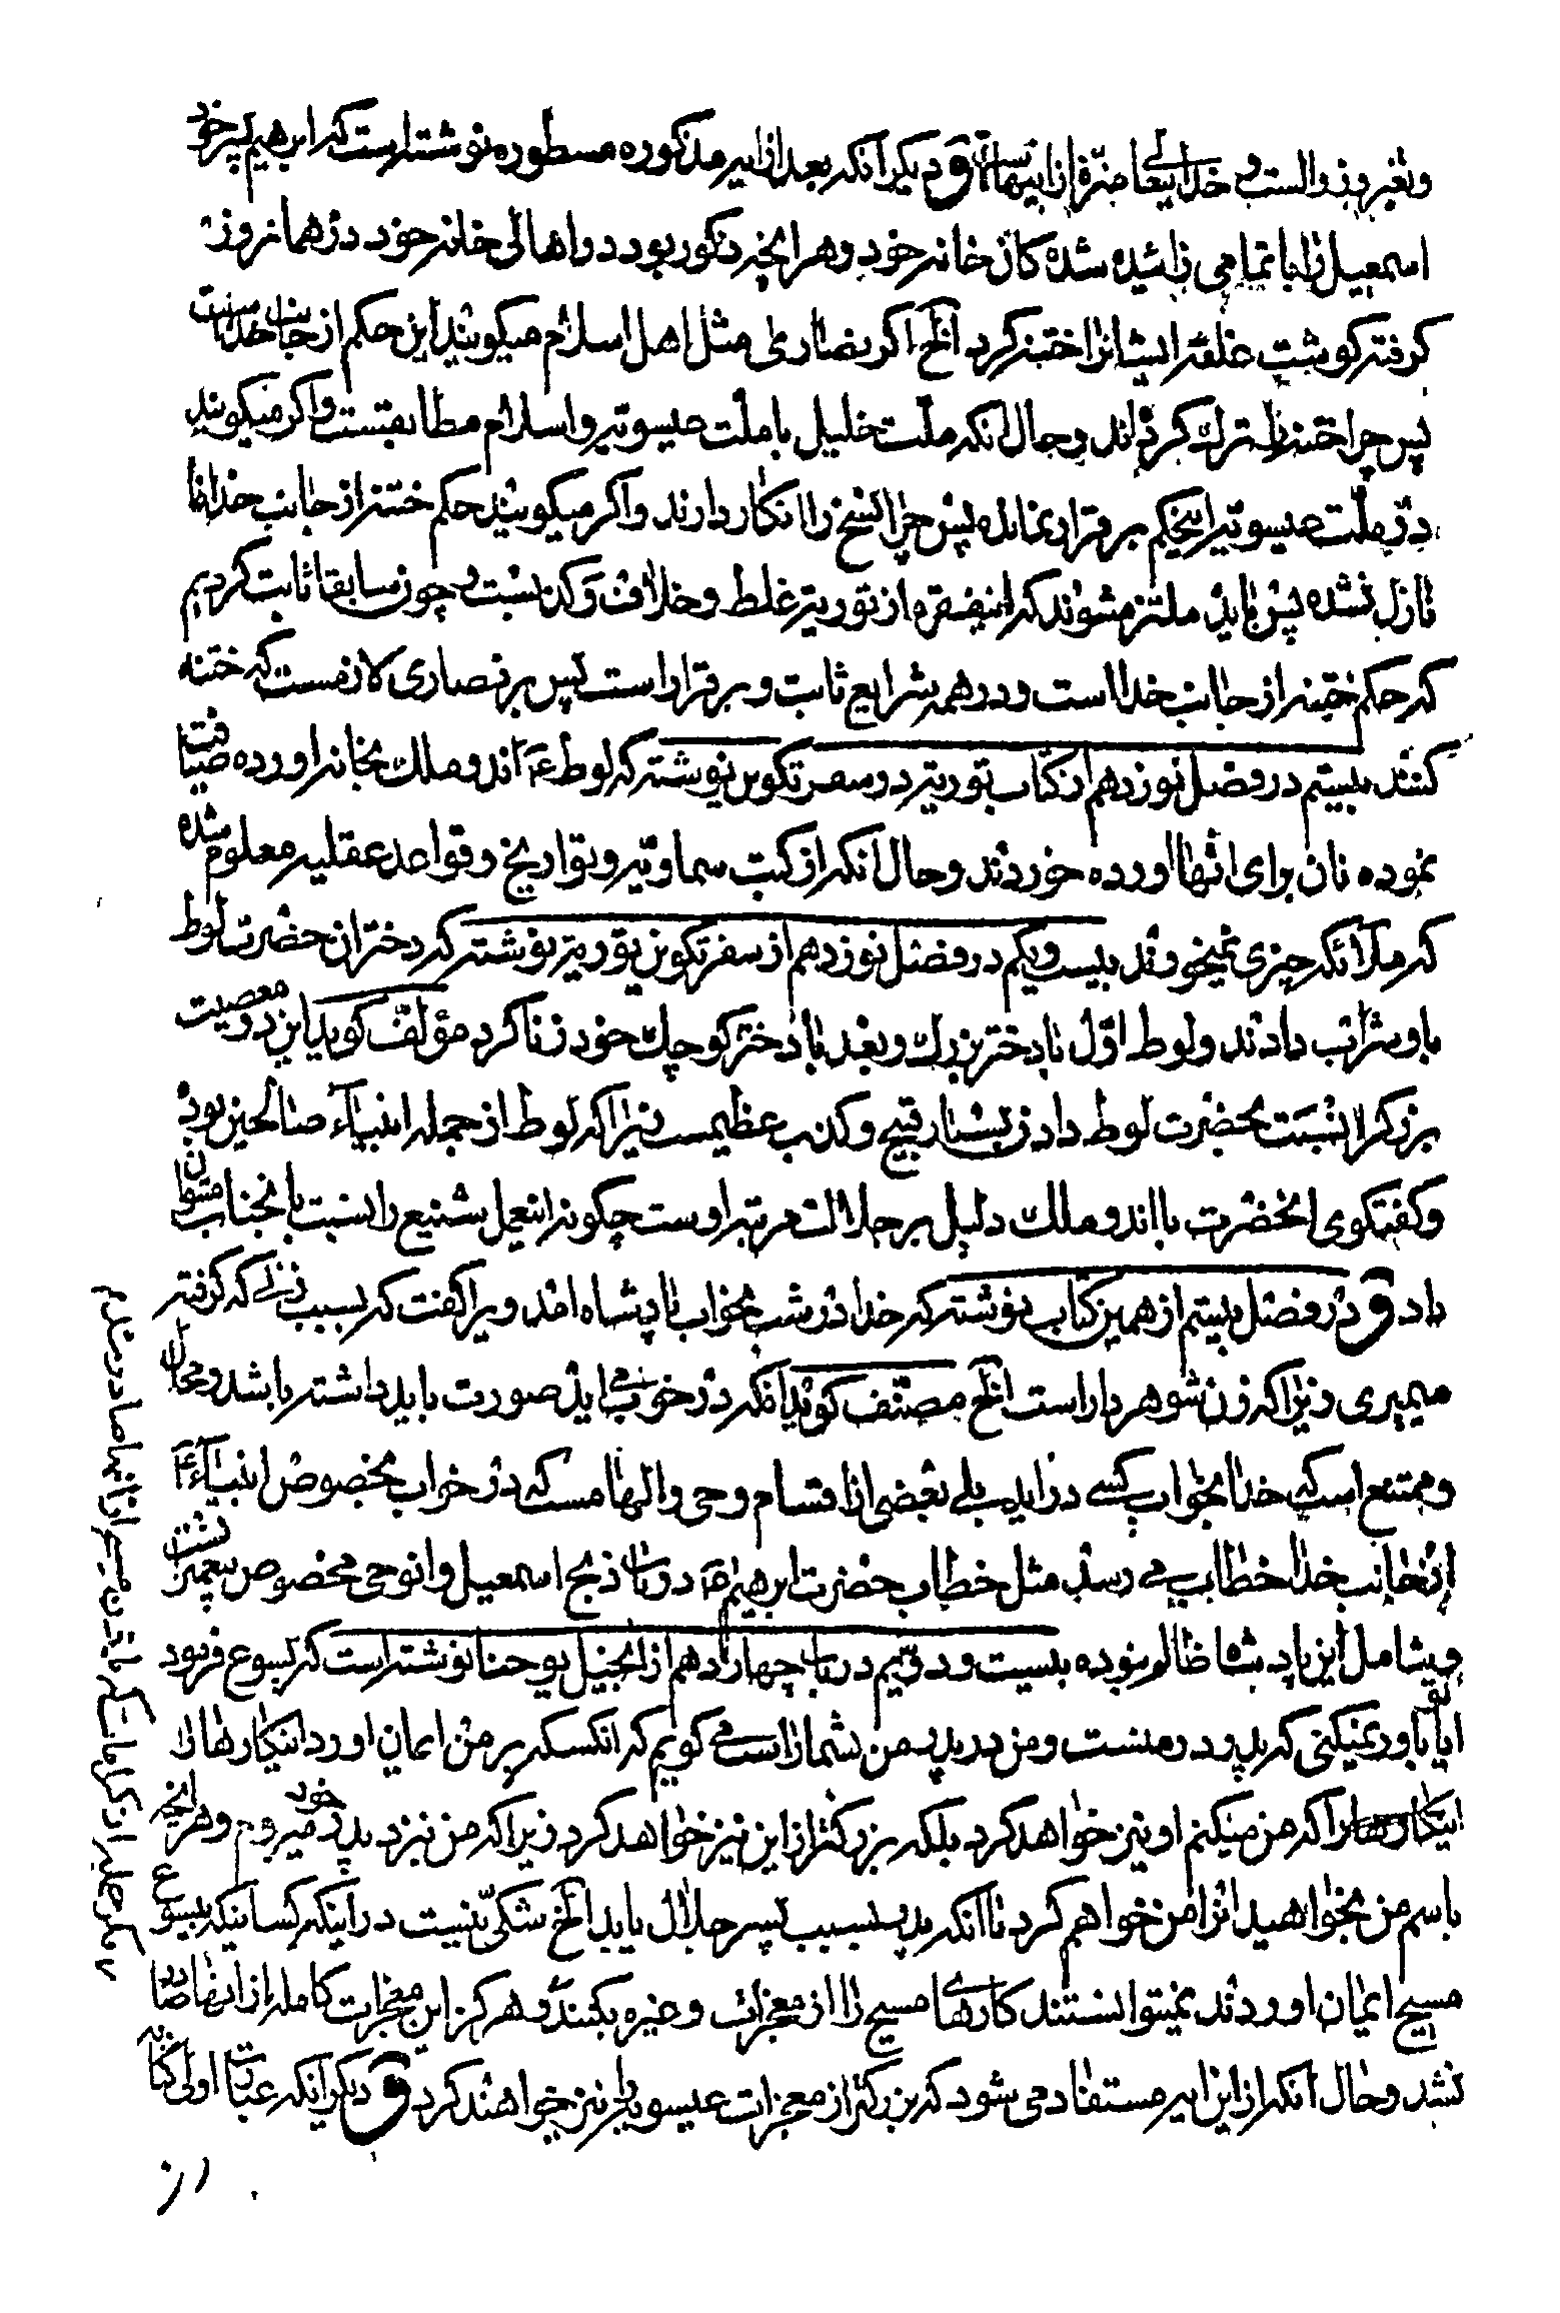 و تغیر و زوالست و خدایتعالی منزه از اینهاست ق دیکر آنکه بعد از آیه مذکوره مسطوره نوشته است که ابرهیم پسر خود
اسمعیل را با تمامی زائیده شده کان خانه خود و هر انچه ذکور بود در اهالی خانه خود در همانروز
کرفته کوشت غلفه ایشانرا ختنه کرد الخ اکر نصاری مثل اهل اسلام میکویند این حکم از جانب خداست
پس چرا ختنه را ترک کرده‌اند و حال آنکه ملت خلیل با ملت عیسویه و اسلام مطابقست و اکر میکویند
در ملت عیسویه اینحکم برقرار نمانده پس چرا نسخ را انکار دارند و اکر میکویند حکم ختنه از جانب خدا
نازل نشده پس باید ملتزم شوند که اینفقره از توریة غلط و خلاف و کذبست و چون سابقا ثابت کردیم
که حکم ختنه از جانب خدا است و در همه شرایع ثابت و برقرار است پس بر نصاری لازمست که ختنه
کنند بیستم در فصل نوزدهم از کتاب توریة در سفر تکوین نوشته که لوط ع اندو ملک بخانه اورده ضیافت
نموده نان برای انها اورده خوردند و حال آنکه از کتب سماویه و تواریخ و قواعد عقلیه معلوم شده
که ملائکه چیزی نمیخورند بیست و یکم در فصل نوزدهم از سفر تکوین توریة نوشته که دختران حضرت لوط
باو شراب دادند و لوط اول با دختر بزرک و بعد با دختر کوچک خود زنا کرد مؤلف کوید این دو معصیت
بزرکرا نسبت بحضرت لوط دادن بسیار قبیح و کذب عظیمست زیرا که لوط از جمله انبیآء صالحین بود
و کفتکوی انحضرت با اندو ملک دلیل بر جلالت مرتبه اوست چکونه اینعمل شنیع را نسبت بانجناب میتوان
داد ق در فصل بیستم از همین کتاب نوشته که خدا در شب بخواب پادشاه امد و یرا کفت که بسبب زنی که کرفته
میمیری زیرا که زن شوهردار است الخ مصنف کوید انکه در خواب می اید صورت باید داشته باشد و محال
و ممتنع است که خدا بخواب کسی در اید بلی بعضی از اقسام وحی و الهامست که در خواب بخصوص انبیآء
از جانب خدا خطاب می رسد مثل خطاب حضرت ابرهیم در باب ذبح اسمعیل و انوحی مخصوص پیغمبرانست
و شامل این پادشاه ظالم نبوده بیست و دویم در باب چهاردهم از انجیل یوحنا نوشته است که یسوع فرمود
ایا تو باور نمیکنی که پدر در منست و من در پدر من شما را راست می کویم که انکسکه بر من ایمان اورد اینکارها را
که من میکنم او نیز خواهد کرد بلکه بزرکتر از این نیز خواهد کرد زیرا که من نزد پدر خود میروم و هر انچه
باسم من بخواهید انرا من خواهم کرد تا آنکه پدر بسبب پسر جلال یابد الخ شکی نیست در اینکه کسانیکه بیسوع
مسیح ایمان اوردند نمیتوانستند کارهای مسیح را از معجزات و غیره بکنند و هرکز این معجزات کامله از انها صادر
نشد و حال آنکه از این ایه مستفاد می شود که بزرکتر از معجزات عیسویرا نیز خواهند کرد ق دیکر آنکه عبارت اولی
از